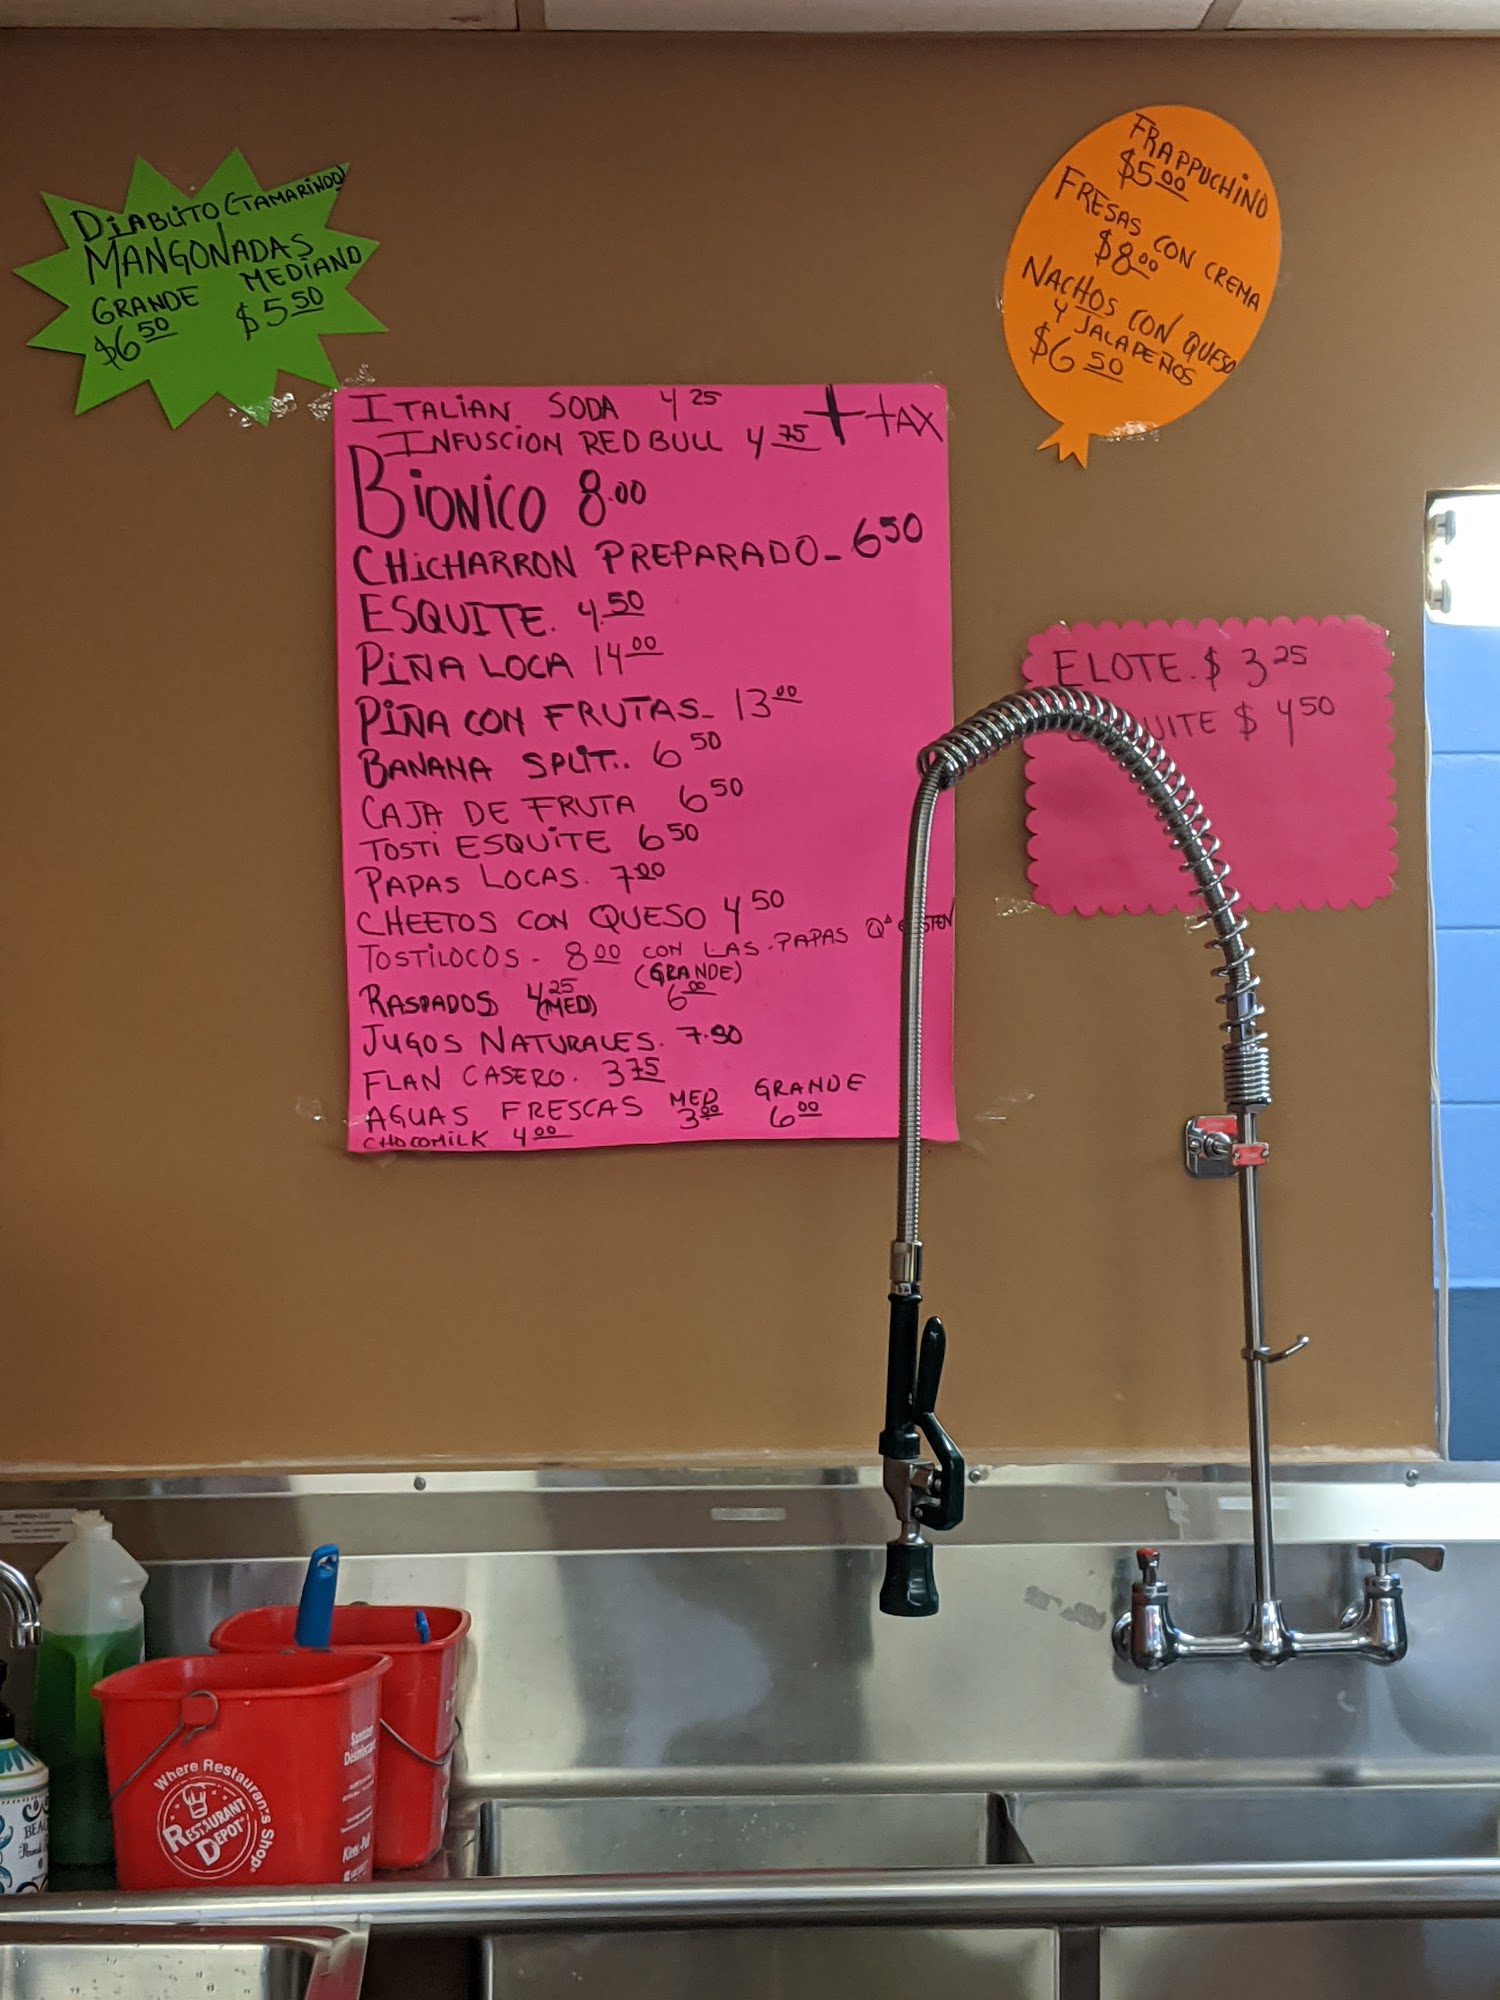 DIABLITO (TAMARINDO)
MANGONADAS
GRANDE MEDIANO
$6.50 $5.50
FRAPPUCHINO
$5.00
FRESAS CON CREMA
$8.00
NACHOS CON QUESO
Y JALAPEÑOS
$6.50
ITALIAN SODA 4.25
+ TAX
INFUSCION RED BULL 4.75
BIONICO 8.00
CHICHARRON PREPARADO - 6.50
ESQUITE. 4.50
PIÑA LOCA 14.00
PIÑA CON FRUTAS - 13.00
BANANA SPLIT.. 6.50
CAJA DE FRUTA 6.50
TOSTI ESQUITE 6.50
PAPAS LOCAS. 7.00
CHEETOS CON QUESO 4.50
TOSTILOCOS - 8.00 CON LAS PAPAS
(GRANDE)
RASPADOS 4.25 (MED) 6.00
JUGOS NATURALES.
FLAN CASERO. 3.75
MED GRANDE
AGUAS FRESCAS 3.00 6.00
CHOCOMILK 4.00
ELOTE. $ 3.25
$ 4.50
Where Restaurants Shop
RESTAURANT
DEPOT